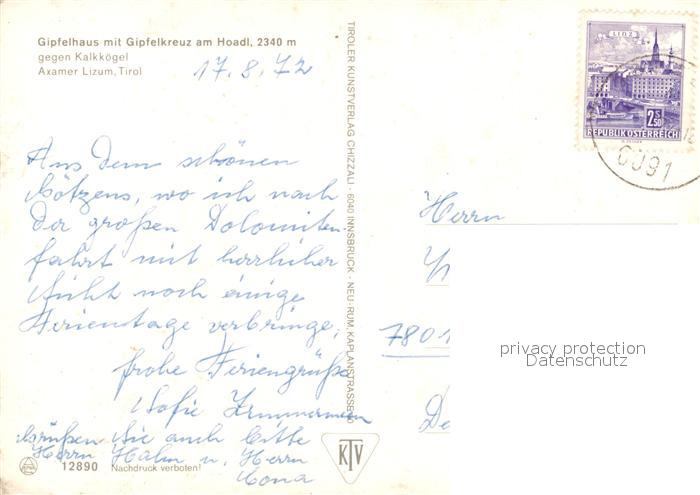 Gipfelhaus mit Gipfelkreuz am Hoadl, 2340 m
gegen Kalkkögel
Axamer Lizum, Tirol
17.8.72
Aus dem schönen
Götzens, wo ich nach
der großen Dolomiten-
fahrt mit herrlicher
Sicht noch einige
Ferientage verbringe,
frohe Feriengrüße
Sofie Zimmermann
Grüßen Sie auch bitte
Herrn Hahn u. Herrn
12890 Nachdruck verboten!
TIROLER KUNSTVERLAG CHIZZALI · 6040 INNSBRUCK - NEU-RUM, KAPLANSTRASSE
KTV
LINZ
2S50
REPUBLIK ÖSTERREICH
6091
Herrn
7801
De
privacy protection
Datenschutz